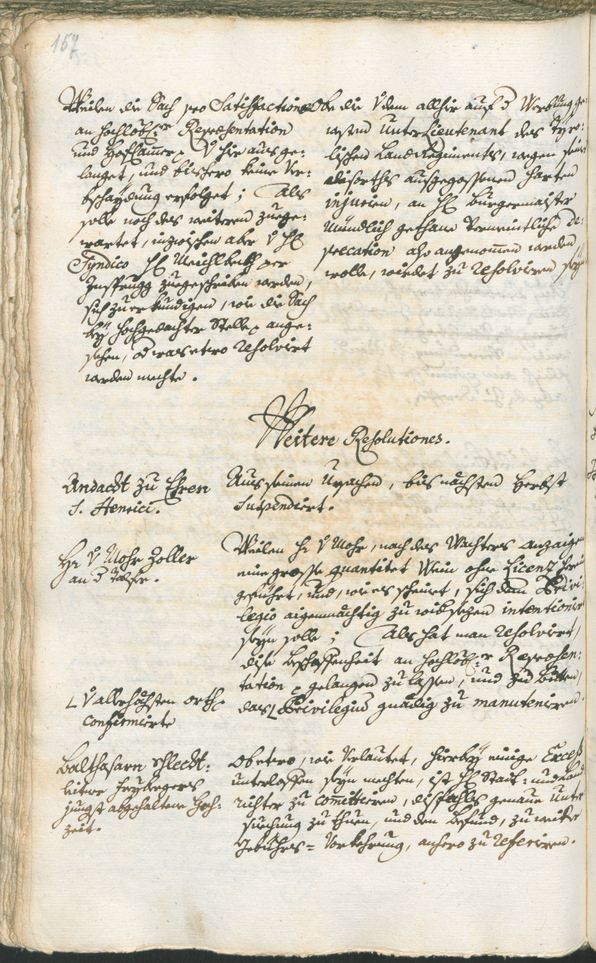 157
Weilen die Sach pro Satisfactione
an hochlöbl: Repræsentation
und Hofkammer, hieraus ge-
langet, und bishero keine Ver-
bschaydung erfolget; Als
solle noch des weiteren zuege-
wartet, inzwischen aber H
Syndico H
Insprugg zuegeschriben werden,
sich zu erkundigen, wie die Sach
bey hochgedachter Stelle ange-
sehen, od was etwo resolvirt
werden mechte.
Ob die v dem allhir auf Werbung ge-
westen Unter Lieutenant des Tyro-
lischen Land Regiments, wegen
ausgegossenen harten
injurien, an H Burgermaister
mündlich gethane vermeintliche De-
precation also angenommen werden
wolle, wiedet zu resolviren
Weitere Resolutiones.
Andacht zu Ehren
S. Henrici.
Aus seinen Ursachen, bis nächsten Herbst
suspendiert.
Hr v Mohr Zoller
an
Weilen Hr v Mohr, nach des Wachters anzaigen
eine grosse quantitet Wein ohne Licenz
geführt, und, wie es scheinet, sich dem Privi-
legio aigenmächtig zu widersezen intentionirt
seyn solle; Als hat man resolvirt,
dise beschaffenheit an hochlöbl: Repræsen-
tation gelangen zu lassen, und zu bitten,
das Privilegium gnädig zu manuteniren.
v allerhöchsten orth
confirmirte
Balthasarn Schlecht-
leitner Freybergers
jüngst abgehaltene Hoch-
zeit.
Ob etwo, wie verlautet, hierbey einige Excess
unterloffen seyn mechten, ist H Statt- und Land
richter zu comittieren, disfahls genaue Unter
suechung zu thuen, und den befund, zu weiter
Gebührs- Vorkehrung, anhero zu referiren.